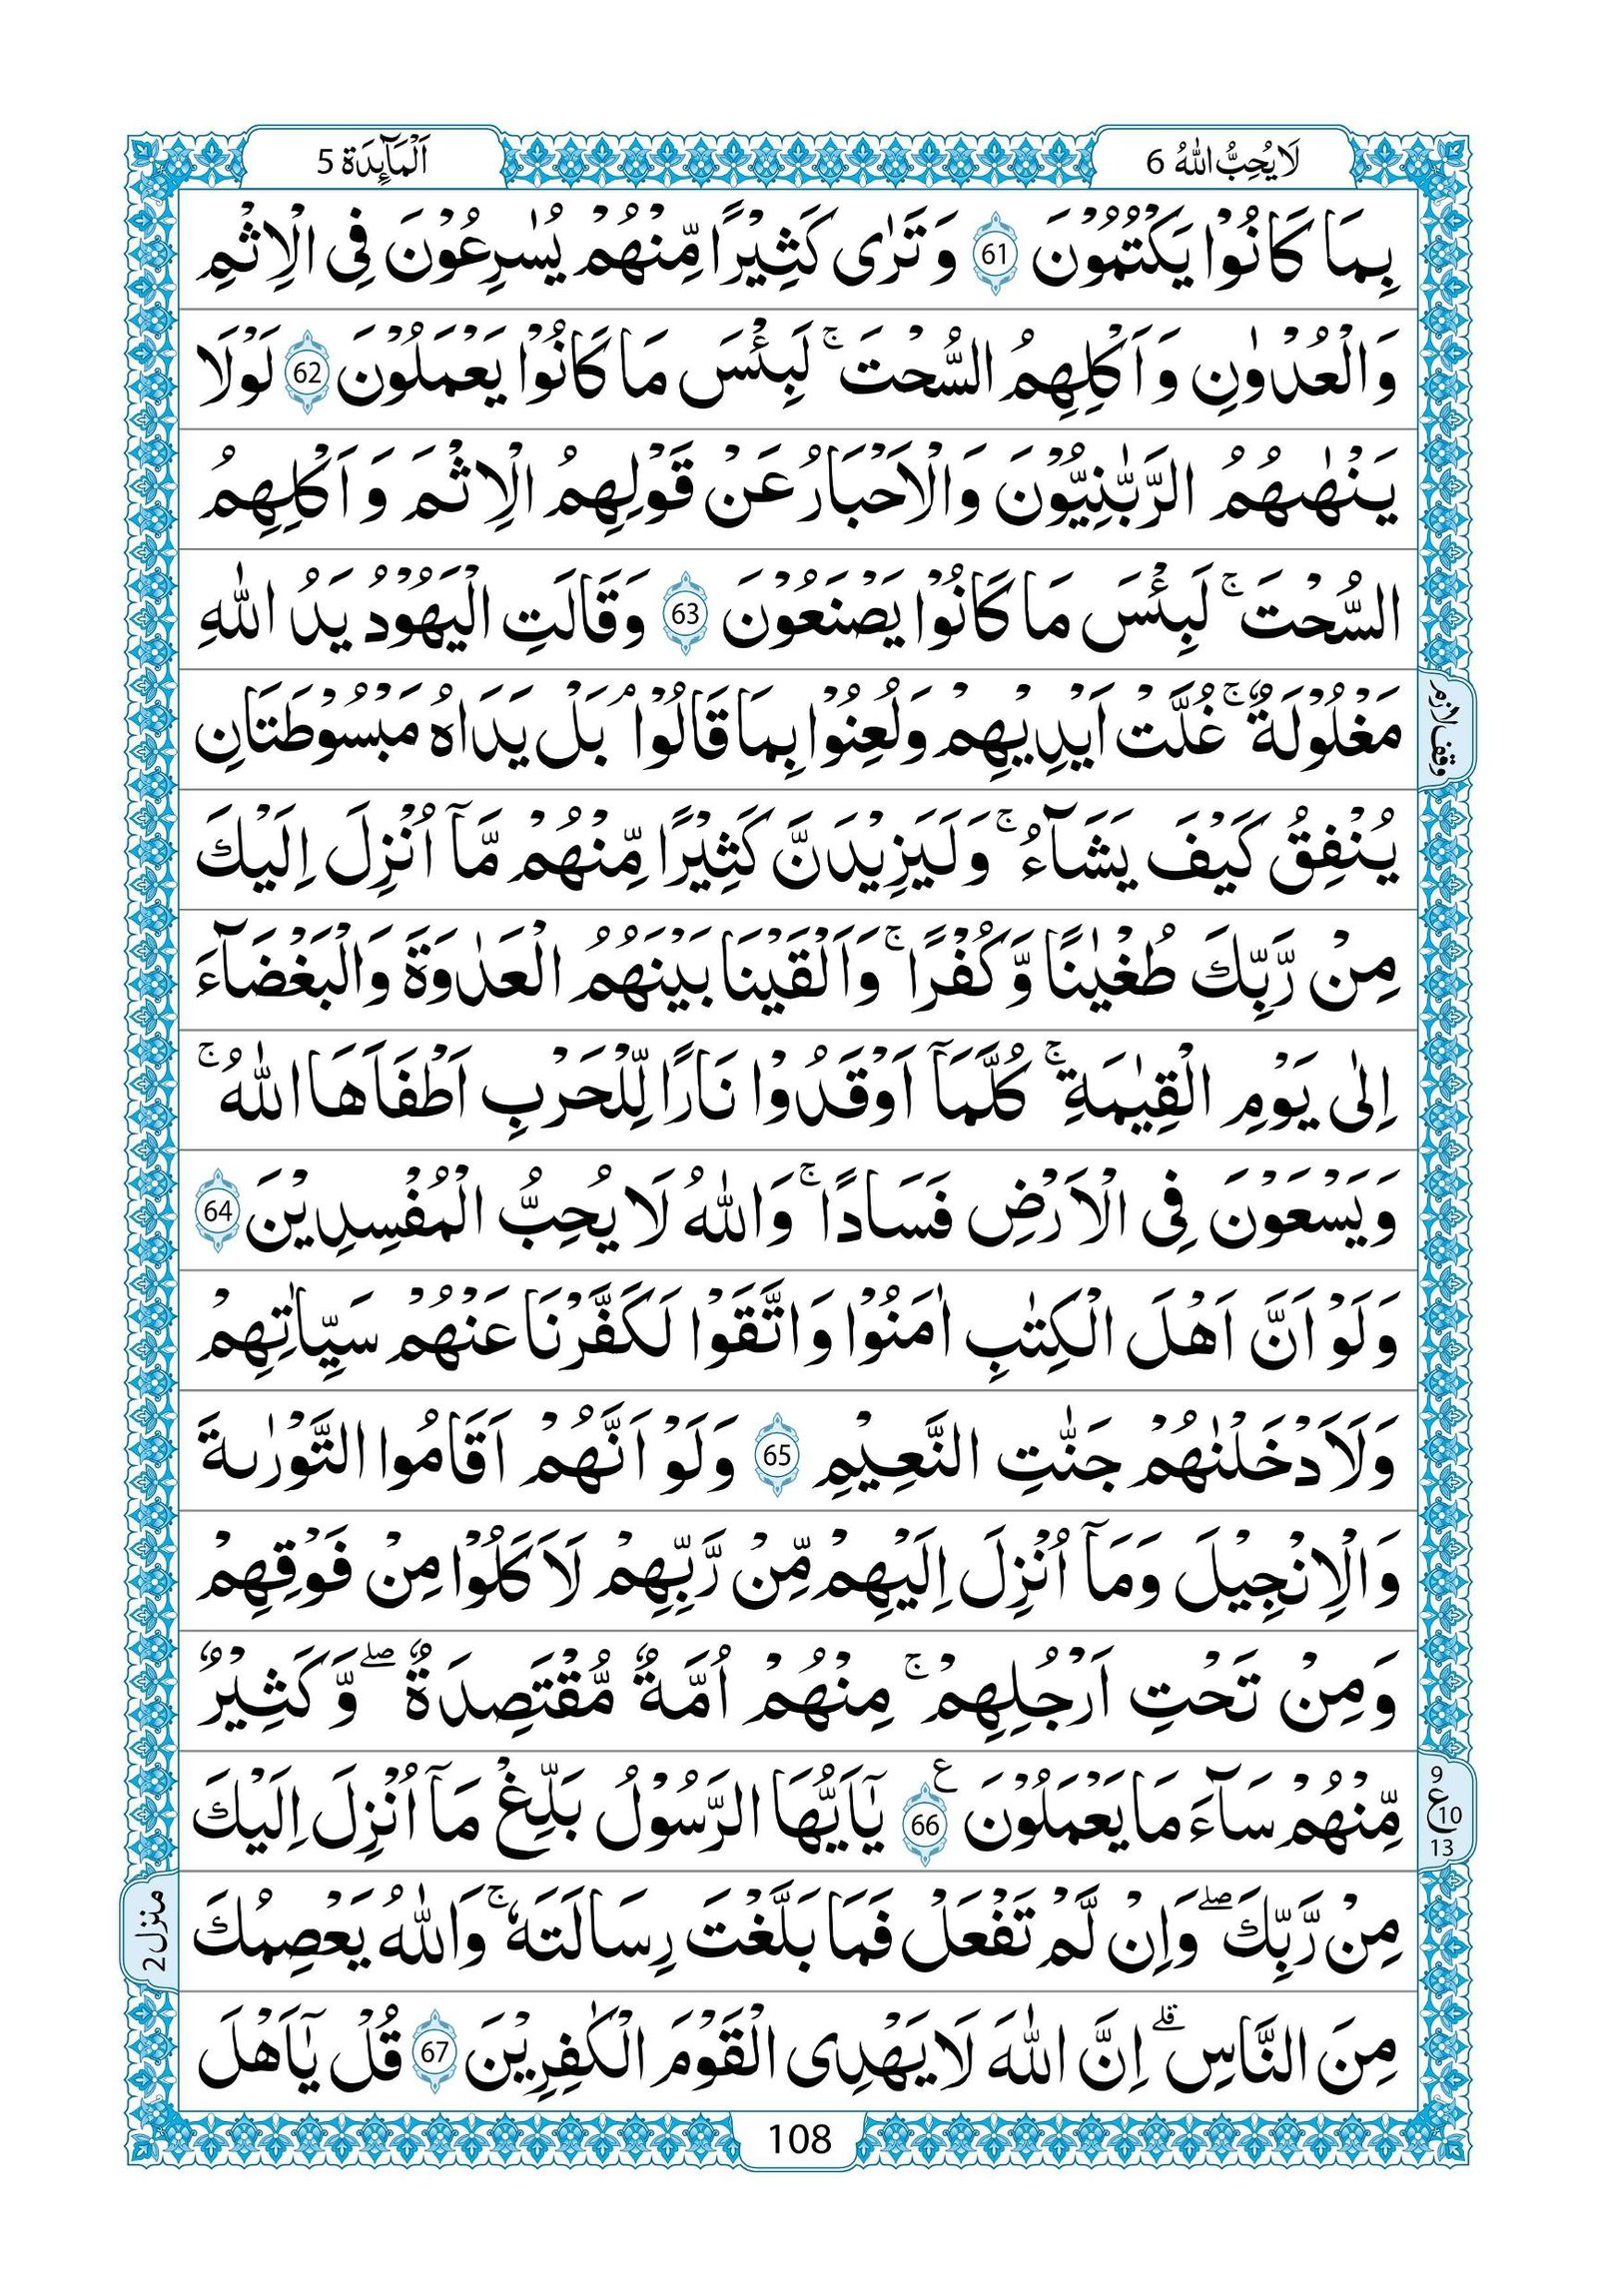 لَا یُحِبُّ اللّٰهُ 6
اَلْمَآىِٕدَة 5
بِمَا كَانُوْا یَكْتُمُوْنَ 61 وَ تَرٰى كَثِیْرًا مِّنْهُمْ یُسٰرِعُوْنَ فِی الْاِثْمِ
وَ الْعُدْوٰنِ وَ اَكْلِهِمُ السُّحْتَ ۚ لَبِئْسَ مَا كَانُوْا یَعْمَلُوْنَ 62 لَوْلَا
یَنْهٰىهُمُ الرَّبّٰنِیُّوْنَ وَ الْاَحْبَارُ عَنْ قَوْلِهِمُ الْاِثْمَ وَ اَكْلِهِمُ
السُّحْتَ ۚ لَبِئْسَ مَا كَانُوْا یَصْنَعُوْنَ 63 وَ قَالَتِ الْیَهُوْدُ یَدُ اللّٰهِ
مَغْلُوْلَةٌ ۚ غُلَّتْ اَیْدِیْهِمْ وَ لُعِنُوْا بِمَا قَالُوْا ۘ بَلْ یَدَاهُ مَبْسُوْطَتَانِ
وقف لازم
یُنْفِقُ كَیْفَ یَشَآءُ ۚ وَ لَیَزِیْدَنَّ كَثِیْرًا مِّنْهُمْ مَّاۤ اُنْزِلَ اِلَیْكَ
مِنْ رَّبِّكَ طُغْیٰنًا وَّ كُفْرًا ۚ وَ اَلْقَیْنَا بَیْنَهُمُ الْعَدٰوَةَ وَ الْبَغْضَآءَ
اِلٰى یَوْمِ الْقِیٰمَةِ ۚ كُلَّمَاۤ اَوْقَدُوْا نَارًا لِّلْحَرْبِ اَطْفَاَهَا اللّٰهُ ۚ
وَ یَسْعَوْنَ فِی الْاَرْضِ فَسَادًا ۚ وَ اللّٰهُ لَا یُحِبُّ الْمُفْسِدِیْنَ 64
وَ لَوْ اَنَّ اَهْلَ الْكِتٰبِ اٰمَنُوْا وَ اتَّقَوْا لَكَفَّرْنَا عَنْهُمْ سَیِّاٰتِهِمْ
وَ لَاَدْخَلْنٰهُمْ جَنّٰتِ النَّعِیْمِ 65 وَ لَوْ اَنَّهُمْ اَقَامُوا التَّوْرٰىةَ
وَ الْاِنْجِیْلَ وَ مَاۤ اُنْزِلَ اِلَیْهِمْ مِّنْ رَّبِّهِمْ لَاَكَلُوْا مِنْ فَوْقِهِمْ
وَ مِنْ تَحْتِ اَرْجُلِهِمْ ۚ مِنْهُمْ اُمَّةٌ مُّقْتَصِدَةٌ ۖ وَّ كَثِیْرٌ
مِّنْهُمْ سَآءَ مَا یَعْمَلُوْنَ 66 ع یٰۤاَیُّهَا الرَّسُوْلُ بَلِّغْ مَاۤ اُنْزِلَ اِلَیْكَ
9
ع 10
13
مِنْ رَّبِّكَ ۖ وَ اِنْ لَّمْ تَفْعَلْ فَمَا بَلَّغْتَ رِسَالَتَهٗ ۚ وَ اللّٰهُ یَعْصِمُكَ
منزل 2
مِنَ النَّاسِ ۗ اِنَّ اللّٰهَ لَا یَهْدِی الْقَوْمَ الْكٰفِرِیْنَ 67 قُلْ یٰۤاَهْلَ
108